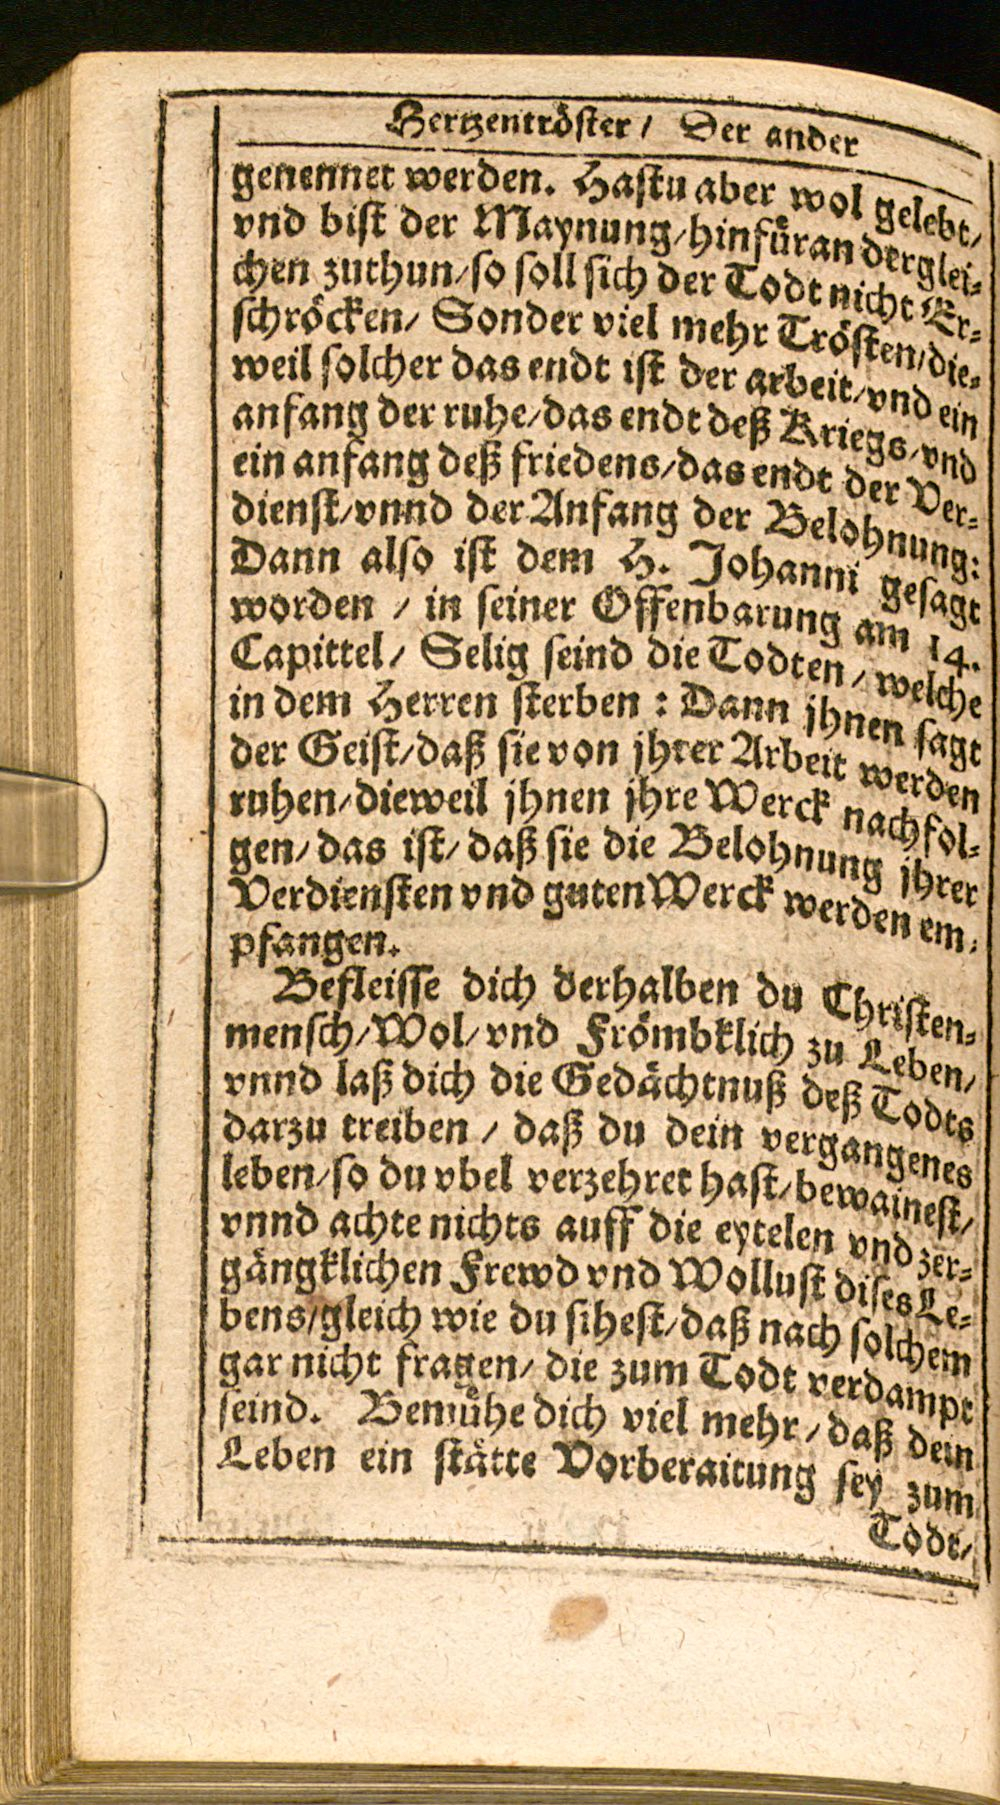 Hertzentröster / Der ander
genennet werden. Hastu aber wol gelebt/
vnd bist der Maynung/hinfüran derglei-
chen zuthun/so soll sich der Todt nicht Er-
schröcken/ Sonder viel mehr Trösten/die-
weil solcher das endt ist der arbeit/vnd ein
anfang der ruhe/das endt deß Kriegs/vnd
ein anfang deß friedens/das endt der Ver-
dienst/vnnd der Anfang der Belohnung:
Dann also ist dem H. Johanni gesagt
worden / in seiner Offenbarung am 14.
Capittel/ Selig seind die Todten/welche
in dem Herren sterben : Dann jhnen sagt
der Geist/daß sie von jhrer Arbeit werden
ruhen/dieweil jhnen jhre Werck nachfol-
gen/ das ist/ daß sie die Belohnung jhrer
Verdiensten vnd guten Werck werden em-
pfangen.
Befleisse dich derhalben du Christen-
mensch/Wol/vnd Frömbklich zu Leben/
vnnd laß dich die Gedächtnuß deß Todts
darzu treiben / daß du dein vergangenes
leben/so du vbel verzehret hast/bewainest/
vnnd achte nichts auff die eytelen vnd zer-
gängklichen Frewd vnd Wollust dises Le-
bens/gleich wie du sihest/daß nach solchem
gar nicht fragen/ die zum Todt verdampt
seind. Bemühe dich viel mehr/daß dein
Leben ein stätte Vorberaitung sey zum
Todt/